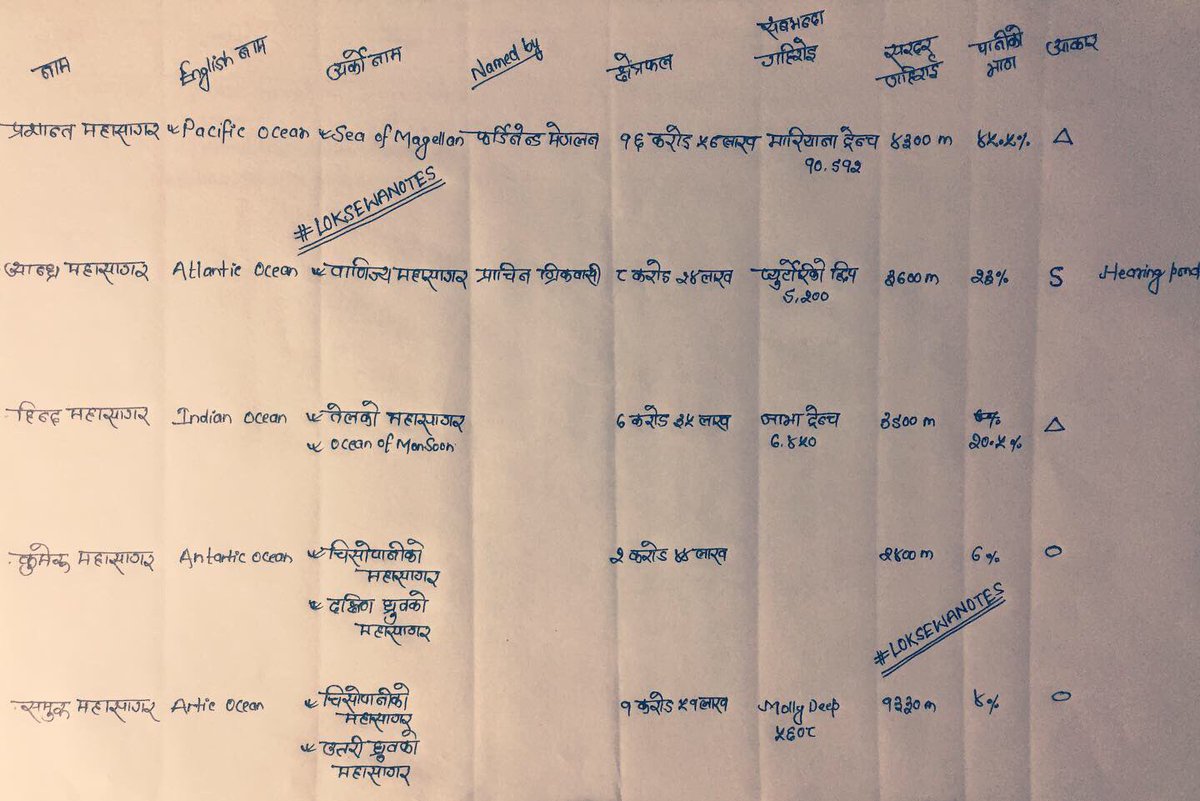 नाम English नाम अर्को नाम Named by क्षेत्रफल सबभन्दा गहिराई सरदर गहिराई पानीको भाग आकार
प्रशान्त महासागर Pacific Ocean Sea of Magellan फर्डिनेन्ड मेगलन १६ करोड ५८ लाख मारियाना ट्रेन्च ४३०० m ४५.५% △
१०.९१२
#LOKSEWANOTES
आन्ध्र महासागर Atlantic Ocean वाणिज्य महासागर प्राचिन ग्रिकवासी ८ करोड २४ लाख प्युर्टोरिको डिप ३६०० m २३% S Hearing pond
९.२००
हिन्द महासागर Indian Ocean तेलको महासागर ७ करोड ३५ लाख जाभा ट्रेन्च ३९०० m △
Ocean of Monsoon ७.४५० २०.५%
कुमेरु महासागर Antartic Ocean चिसोपानीको २ करोड ४४ लाख २४०० m ७% O
महासागर
दक्षिण ध्रुवको
महासागर
#LOKSEWANOTES
सुमेरु महासागर Artic Ocean चिसोपानीको १ करोड ५१ लाख Molly Deep १३३० m ४% O
महासागर ५६०८
उतरी ध्रुवको
महासागर